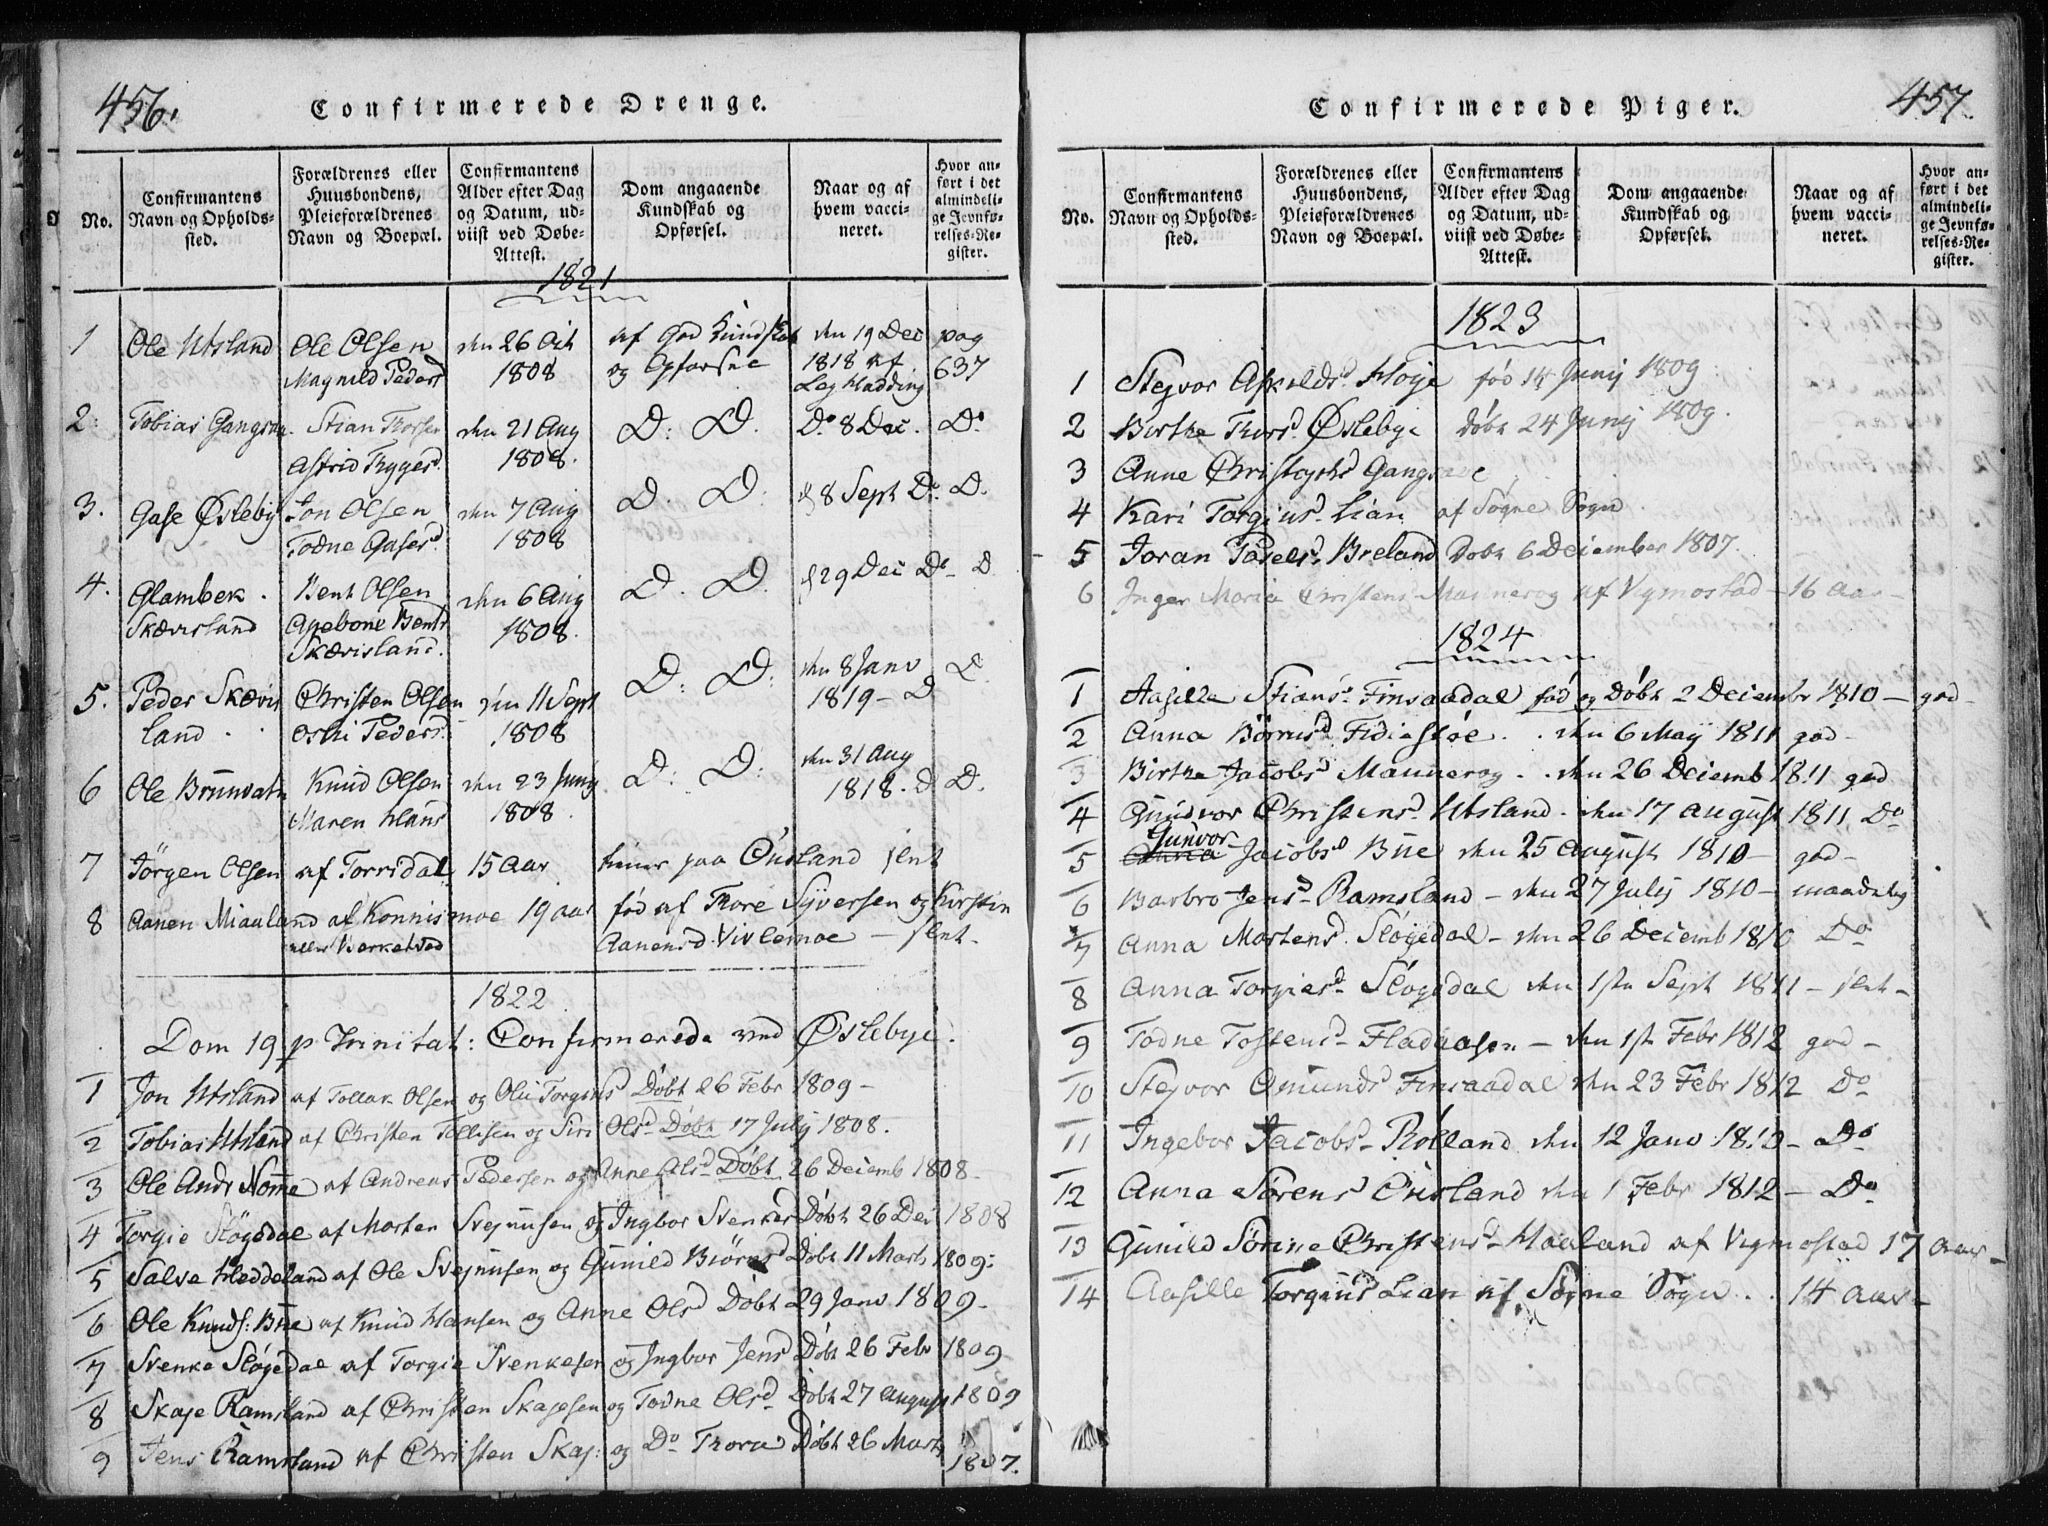 456.
Confirmerede Drenge.
No.
Confirmantens Navn og Opholdssted.
Forældrenes eller Huusbondens, Pleieforældrenes Navn og Boepæl.
Confirmantens Alder efter Dag og Datum, udviist ved Døbe-Attest.
Dom angaaende Kundskab og Opførsel.
Naar og af hvem vaccineret.
Hvor anført i det almindelige Jevnførelses-Register.
1821
1 Ole Utsland Ole Olsen den 26 Oct af God Kundskab den 19 Dec pag
Magnild Peders 1808 og Opførsel 1818 af 637
2: Tobias Gangsaa. Stian Thorsen den 21 Aug D: D. Do 8 Dec. Do
Astrid Trygesd. 1808.
3. Gase Øslebÿ Jon Olsen den 7 Aug D. D. d 8 Sept Do. D.
Todne Gasesd. 1808
4. Glambek. Bent Olsen den 6 Aug D. D. d 29 Dec Do- D
Skævisland Agebone Bents 1808.
Skævisland.
5. Peder Skævis Christen Olsen den 11 Sept D: D: den 8 Janv D.
land. Peders 1808 1819 - D
6 Ole Brunvatn Knud Olsen den 23 Junÿ D: D: den 31 Aug
Maren Hans 1808. 1818. D D.
7 Jörgen Olsen af Torridal 15 Aar tiener paa Øusland slet
8 Aanen Miauland af Konnismoe 19 aar fød af Thore Sÿversen og Kirstin
eller Aanensd. Vivlemoe - slet.
1822
Dom 19 p Trinitat: Confirmerede ved Øslebye.
1 Jon Utsland af Tollak Olsen og Torgiusd Døbt 26 Febr 1809 -
2 Tobias Utsland af Christen Tollisen og Siri Olsd Døbt 17 Julÿ 1808.
3 Ole Andr Nomme af Andreas Pedersen og Anne Olsd Døbt 26 Decemb 1808 -
4 Torgie Sløgedal af Morten Svejnusen og Ingbor Svenkesd Døbt 26 Dec 1808
5 Salve Heddeland af Ole Svejnusen og Gunild Biörnsd Døbt 11 Marts 1809:
6 Ole Knuds: Bue af Knud Hansen og Anne Olsd Døbt 29 Janv 1809 -
7 Svenke Sløgedal af Torgie Svenkesen og Ingbor Jensd Døbt 26 Febr 1809
8 Skaje Ramsland af Christen Skajesen og Todne Olsd Døbt 27 August 1809
9 Jens Ramsland af Christen Skaj: og Do Thora Døbt 26 Marts
1807.
457.
Confirmerede Piger.
No.
Confirmantens Navn og Opholdssted.
Forældrenes eller Huusbondens, Pleieforældrenes Navn og Boepæl.
Confirmantens Alder efter Dag og Datum, udviist ved Døbe-Attest.
Dom angaaende Kundskab og Opførsel.
Naar og af hvem vaccineret.
Hvor anført i det almindelige Jevnførelses-Register.
1823
1 Stejvor Askeldsd. Høije fød 14 Junij 1809.
2 Birthe Thorsd. Øslebye Døbt 24 Junij 1809.
3 Anne Gangsaae
4 Kari Torgiusd. Lian af Søgne Sogn.
5 Joran Breland Døbt 6 December 1807.
6 Inger Maria Christens Mannerog af Vigmostad - 16 aar -
1824
1 Aasille Stiansd. Finsaadal fød og Døbt 2 Decembr 1810 - god -
2 Anna Börnsd Fidiestøe. . den 6 Maÿ 1811 god -
3 Birthe Jacobsd Mannerog. . den 26 Decemb 1811 god
4 Gundvor Christensd Utsland. den 17 August 1811 Do
Gunvor
5 Anna Jacobsd Bue den 25 August 1810 - god -
6 Barbro Jensd Ramsland - den 27 Julij 1810 - maadelig
7 Anna Mortensd. Sløgedal - den 26 Decemb 1810 Do
8 Anna Torgiesd - Sløgedal den 1ste Sept 1811 - slet -
9 Todne Tostensd - Fladaasen - den 1ste Febr 1812 god -
10 Stejvor Omundsd Finsaadal den 23 Febr 1812 Do
11 Ingebor Jacobsd - Rölland den 12 Janv 1810 - Do
12 Anna Sørensd Øusland den 1 Febr 1812 - Do
13 Gunild Sørine Christensd - Haaland af Vigmostad 17 aar -
14 Aasille Torgiusd Lian af Søgne Sogn. . 14 aar -